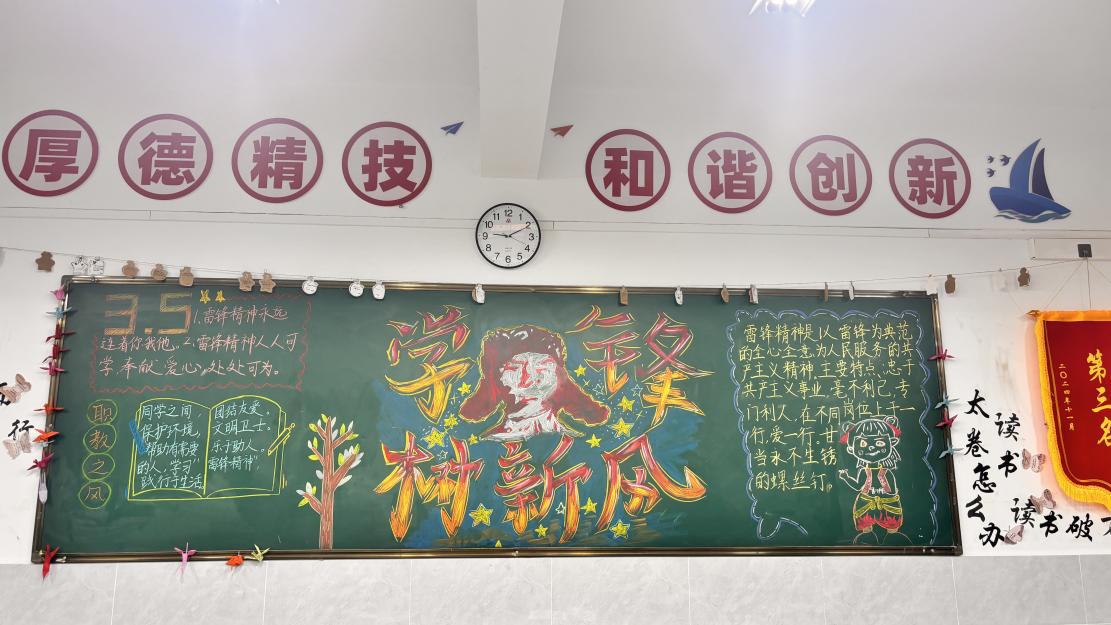 厚德精技
和谐创新
12 1 2 3 4 5 6 7 8 9 10 11
3.5
1.雷锋精神永远
连着你我他。2.雷锋精神人人可
学,奉献、爱心,处处可为。
职教之风
同学之间,
保护环境,
帮助有需要
的人,学习"
践行于生活
团结友爱。
文明卫士。
乐于助人。
雷锋精神",
学雷锋
树新风
雷锋精神是以雷锋为典范
的全心全意为人民服务的共
产主义精神,主要特点:忠于
共产主义事业,毫不利己,专
门利人,在不同岗位上干一
行,爱一行。甘
当永不生锈
的螺丝钉。
行
太卷怎么办
读书
读书破
第三名
二〇二四年十一月